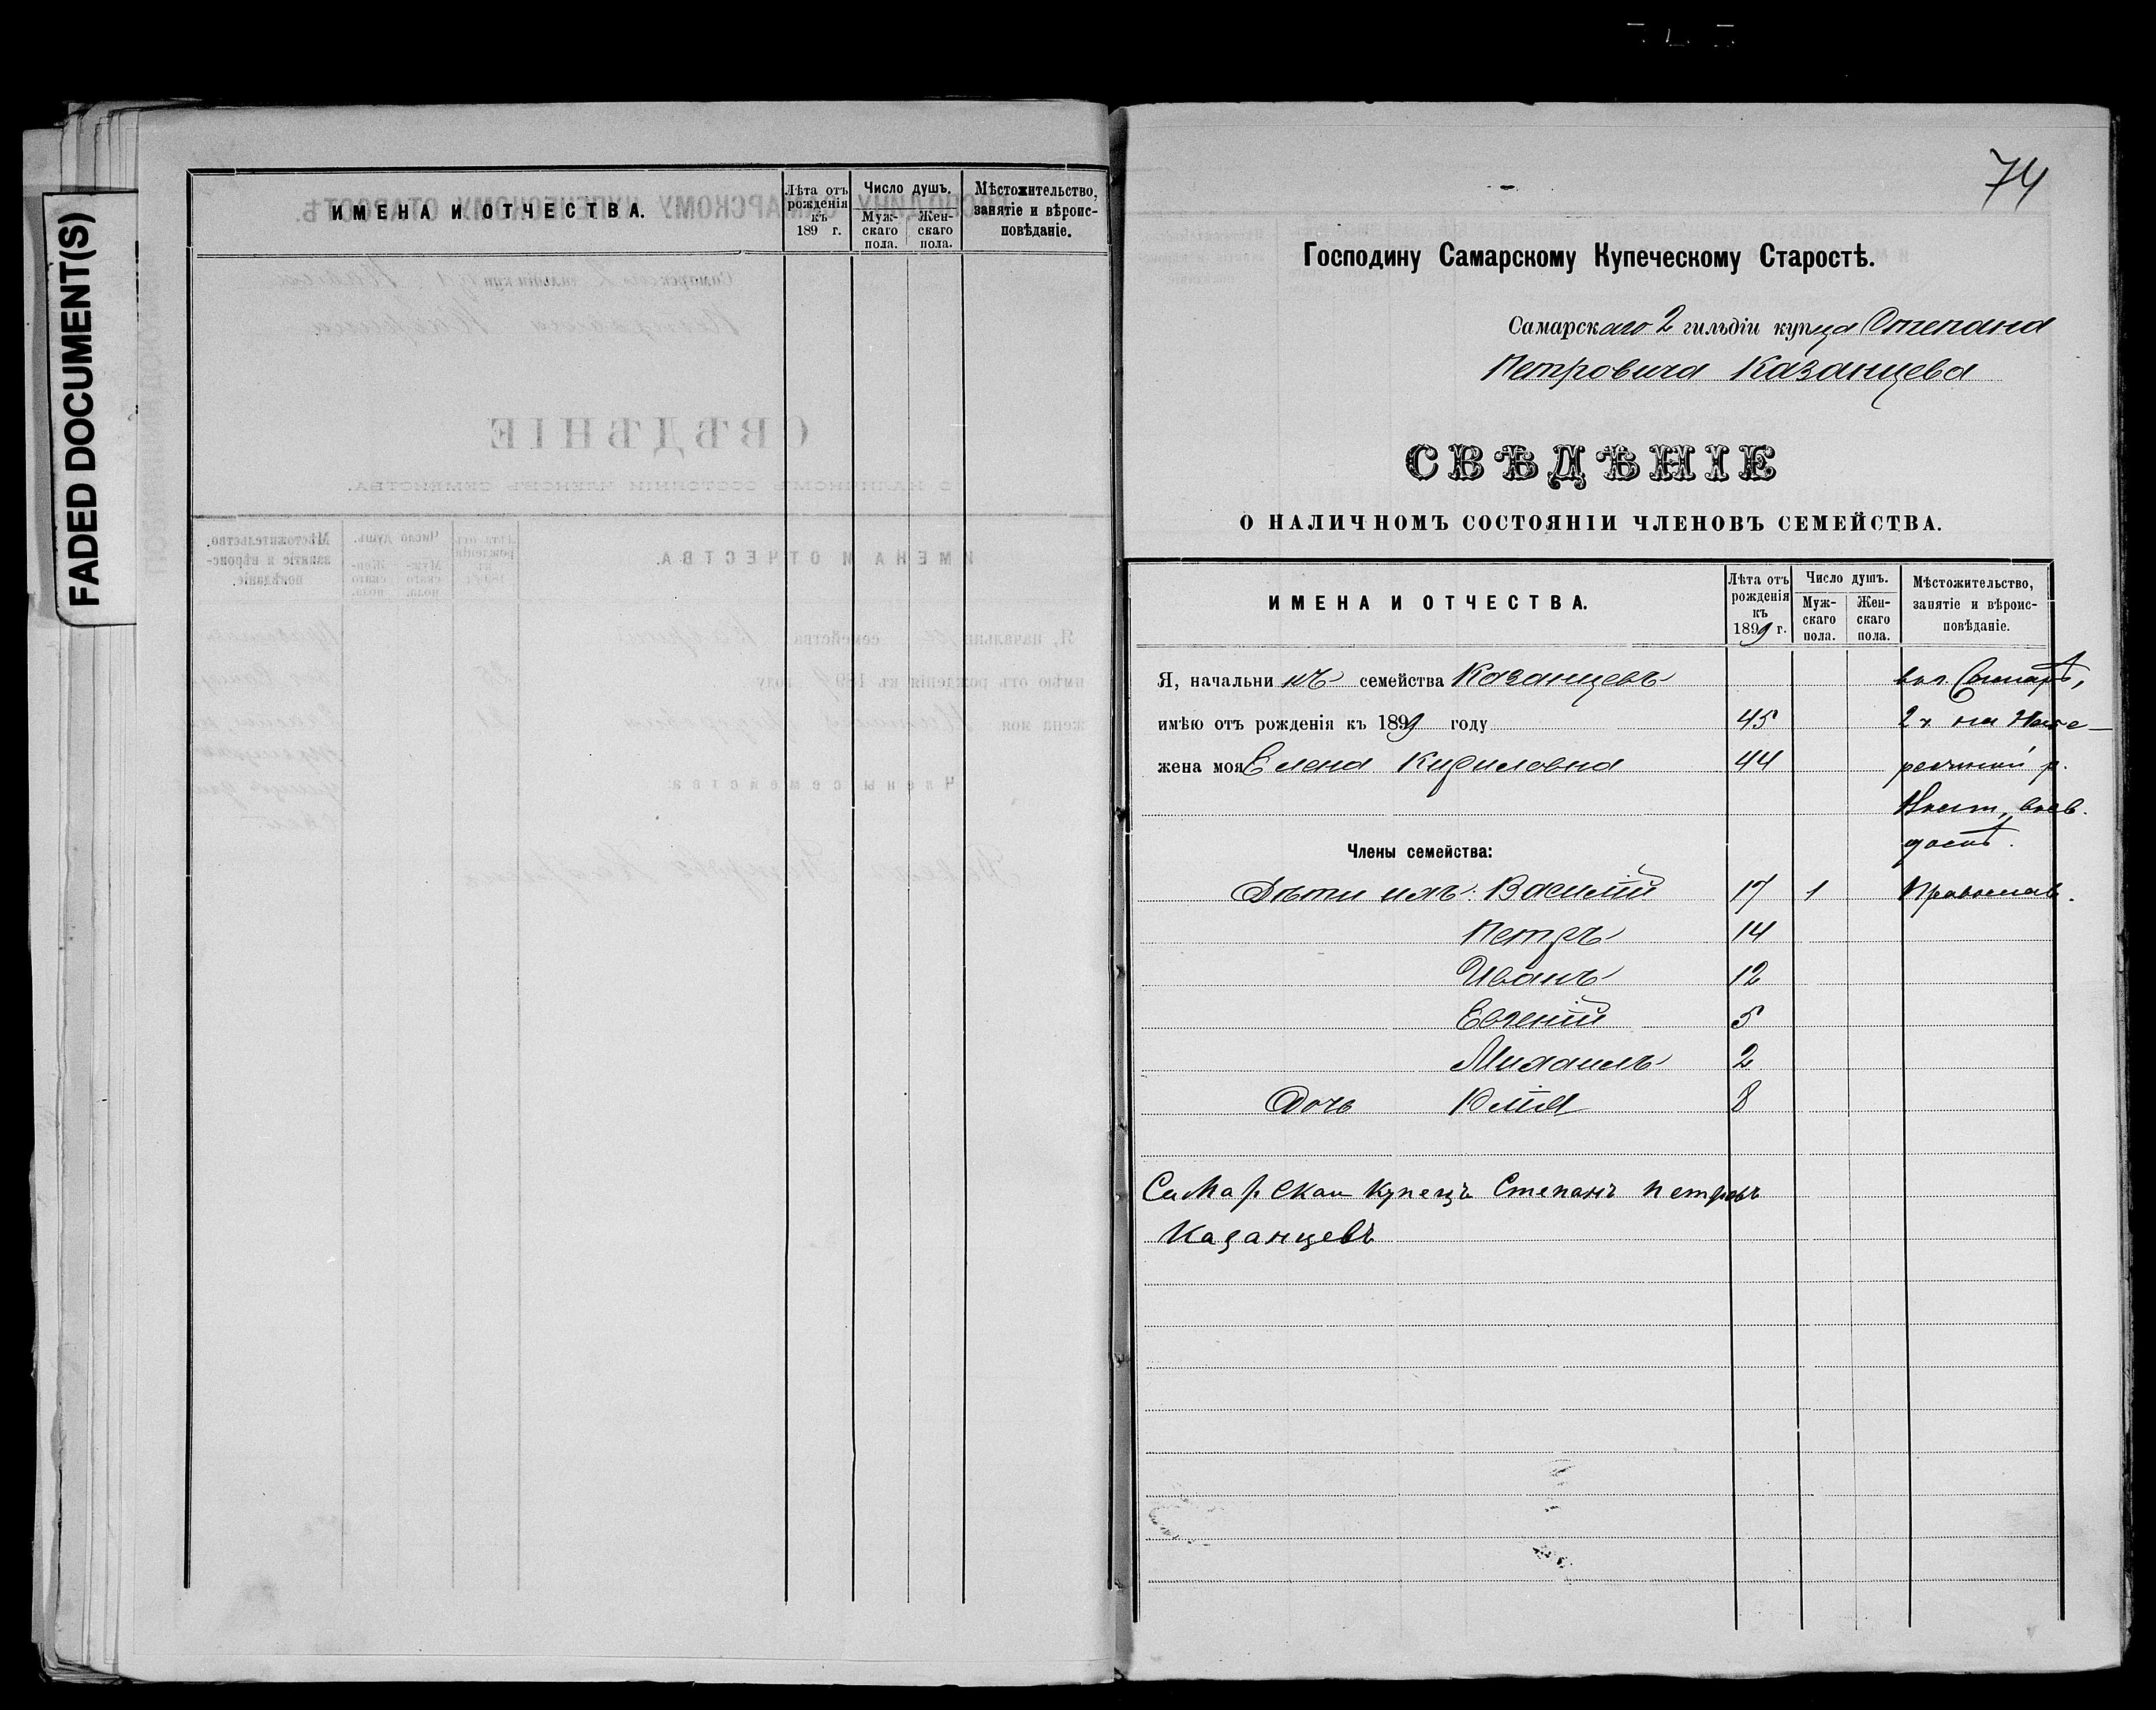 FADED DOCUMENT(S)
ИМЕНА И ОТЧЕСТВА.
Лѣта отъ рожденія къ 189 г.
Число душъ.
Мужскаго пола.
Женскаго пола.
Мѣстожительство, занятіе и вѣроисповѣданіе.
74
Господину Самарскому Купеческому Старостѣ.
Самарскаго 2 гильдіи купца Степана
Петровича Казанцева
СВѢДѢНІЕ
О НАЛИЧНОМЪ СОСТОЯНІИ ЧЛЕНОВЪ СЕМЕЙСТВА.
ИМЕНА И ОТЧЕСТВА.
Лѣта отъ рожденія къ 1899 г.
Число душъ.
Мужскаго пола.
Женскаго пола.
Мѣстожительство, занятіе и вѣроисповѣданіе.
Я, начальникъ семейства Казанцевъ
имѣю отъ рожденія къ 1899 году 45
жена моя Елена Кириловна 44
Члены семейства:
Дѣти ихъ: Василій 17 1 Православ.
Петръ 14
Иванъ 12
Евгений 5
Михаилъ 2
Дочь Юлія 8
Самарскаи Купецъ Степанъ Петровъ
Казанцевъ